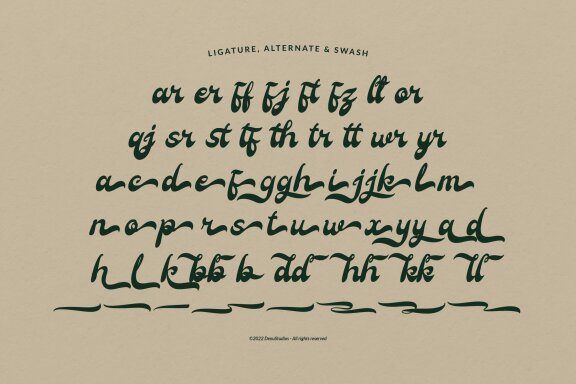 LIGATURE, ALTERNATE & SWASH
ar er ff fj ft fz lt or
qj sr st tf th tr tt wr yr
a c d e f g g h i j j k l m
n o p r s t u w x y y a d
h l k b b b d d h h k k l l
©2022 DenuStudios - All rights reserved